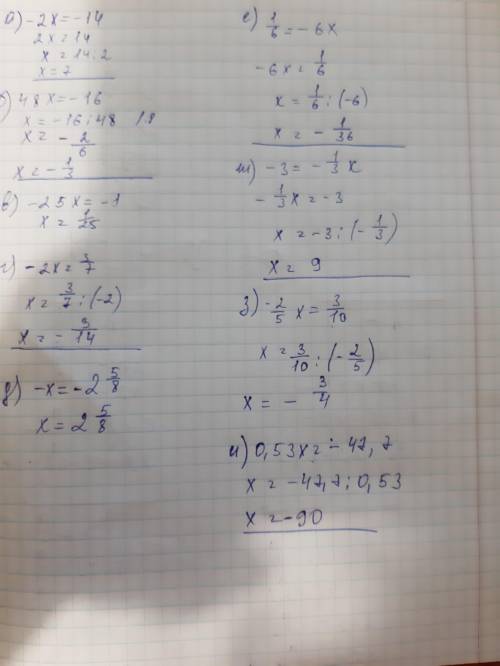 а) -2x = -14
2x = 14
x = 14 : 2
x = 7
48x = -16
x = -16 : 48
x = - 2/6
x = - 1/3
в) -25x = -1
x = 1/25
г) -2x = 3/7
x = 3/7 : (-2)
x = - 3/14
д) -x = -2 5/8
x = 2 5/8
е) 1/6 = -6x
-6x = 1/6
x = 1/6 : (-6)
x = - 1/36
ж) -3 = - 1/3 x
- 1/3 x = -3
x = -3 : (- 1/3)
x = 9
з) - 2/5 x = 3/10
x = 3/10 : (- 2/5)
x = - 3/4
и) 0,53x = -47,7
x = -47,7 : 0,53
x = -90